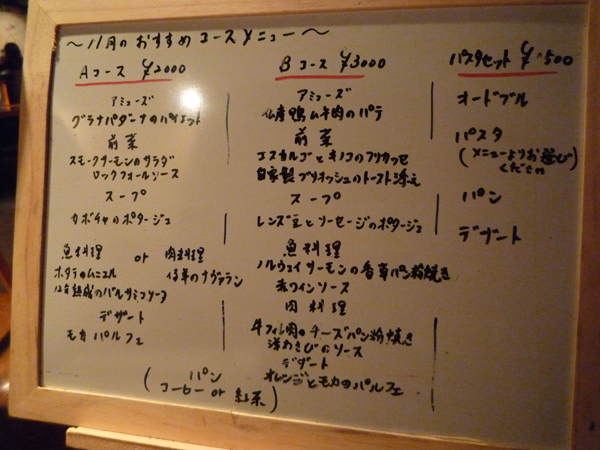 〜11月のおすすめコースメニュー〜
Aコース ¥2000
アミューズ
グラナパダーナのパイエット
前菜
スモークサーモンのサラダ
ロックフォールソース
スープ
カボチャのポタージュ
魚料理 or 肉料理
ホタテのムニエル 仔羊のナヴァラン
12年熟成のバルサミコソース
デザート
モカパルフェ
Bコース ¥3000
アミューズ
仏産鴨ムネ肉のパテ
前菜
エスカルゴとキノコのフリカッセ
自家製ブリオッシュのトースト添え
スープ
レンズ豆とソーセージのポタージュ
魚料理
ノルウェイサーモンの香草パン粉焼き
赤ワインソース
肉料理
牛フィレ肉のチーズパン粉焼き
洋わさびのソース
デザート
オレンジとモカのパルフェ
(パン
コーヒー or 紅茶)
パスタセット ¥1500
オードブル
パスタ
(メニューよりお選び
ください)
パン
デザート